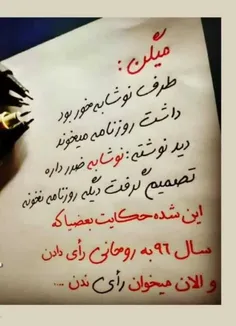 میگن :
طرف نوشابه خور بود
داشت روزنامه میخوند
دید نوشته : نوشابه ضرر داره
تصمیم گرفت دیگه روزنامه نخونه
این شده حکایت بعضیا که
سال ۹۶ به روحانی رأی دادن
و الان میخوان رأی ندن ....